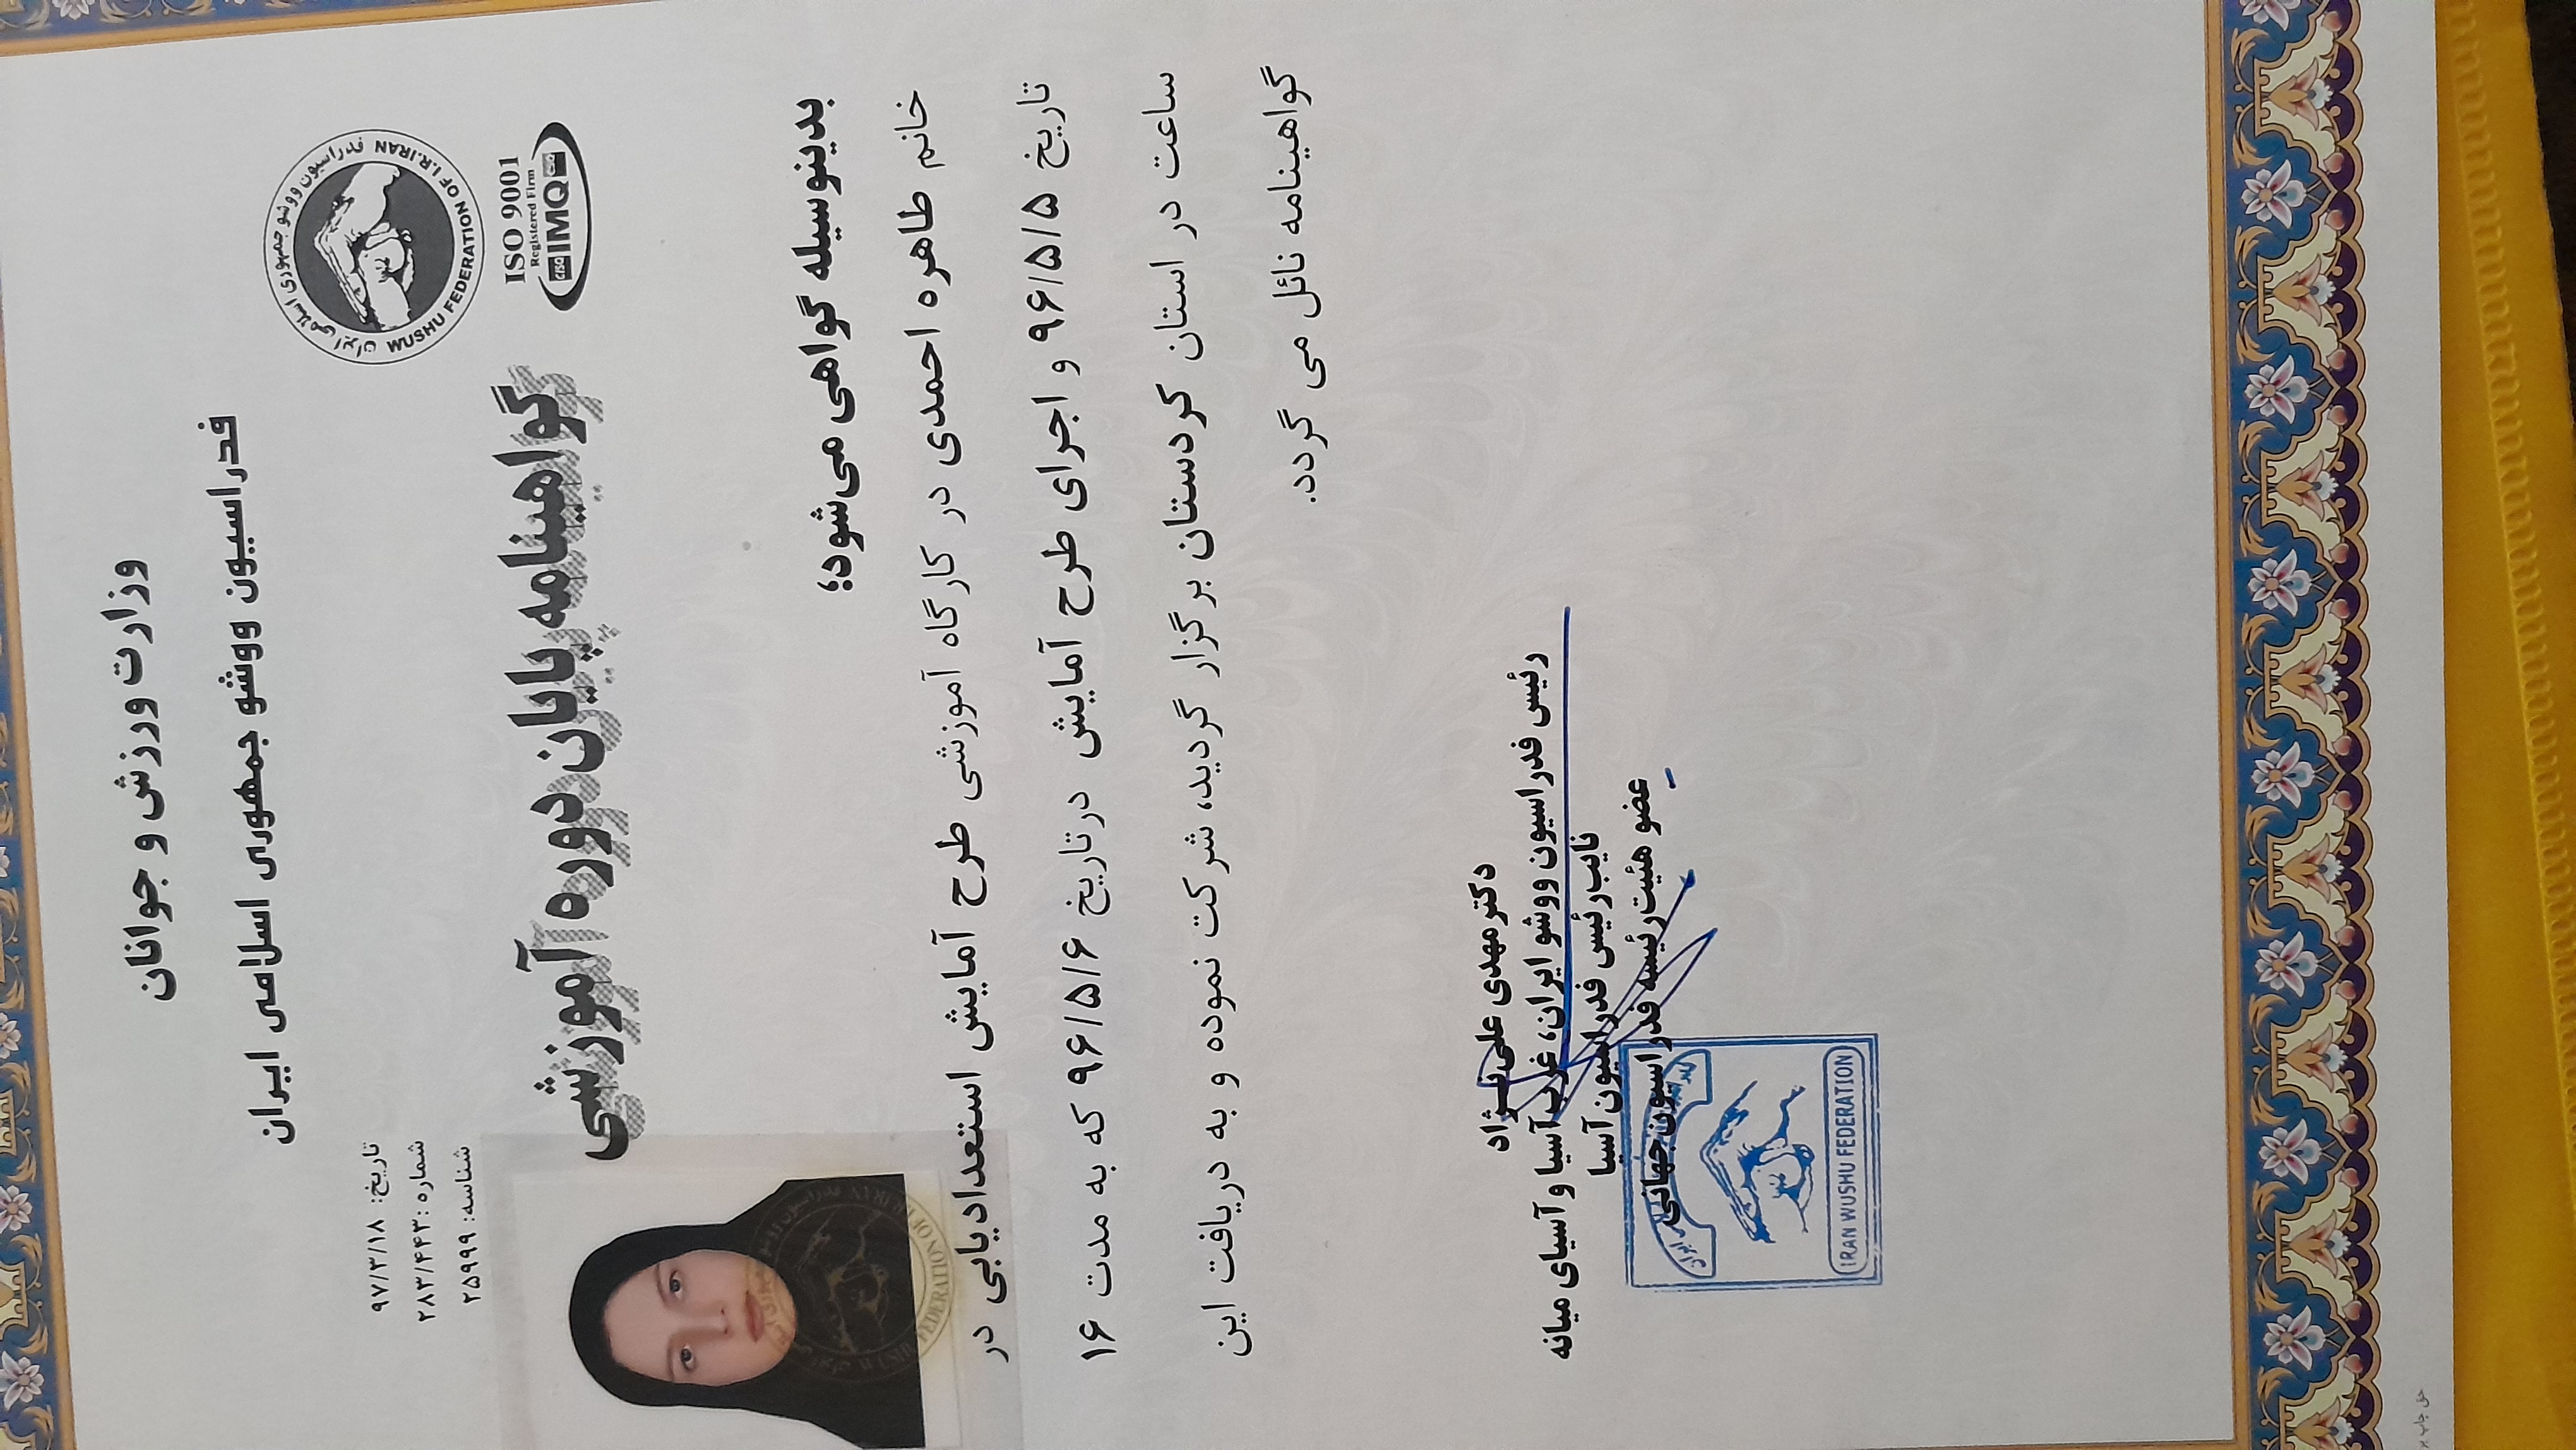 وزارت ورزش و جوانان
فدراسیون ووشو جمهوری اسلامی ایران
فدراسیون ووشو جمهوری اسلامی ایران
WUSHU FEDERATION OF I.R.IRAN
ISO 9001
Registered Firm
IMQ
تاریخ: ۹۷/۳/۱۸
شماره: ۲۸۳/۴۴۳
شناسه: ۲۵۹۹۹
گواهینامه پایان دوره آموزشی
بدینوسیله گواهی می‌شود؛
خانم طاهره احمدی در کارگاه آموزشی طرح آمایش استعدادیابی در
تاریخ ۹۶/۵/۵ و اجرای طرح آمایش درتاریخ ۹۶/۵/۶ که به مدت ۱۶
ساعت در استان کردستان برگزار گردید، شرکت نموده و به دریافت این
گواهینامه نائل می گردد.
دکتر مهدی علی نژاد
رئیس فدراسیون ووشو ایران، غرب آسیا و آسیای میانه
نایب رئیس فدراسیون آسیا
عضو هئیت رئیسه فدراسیون جهانی
IRAN WUSHU FEDERATION